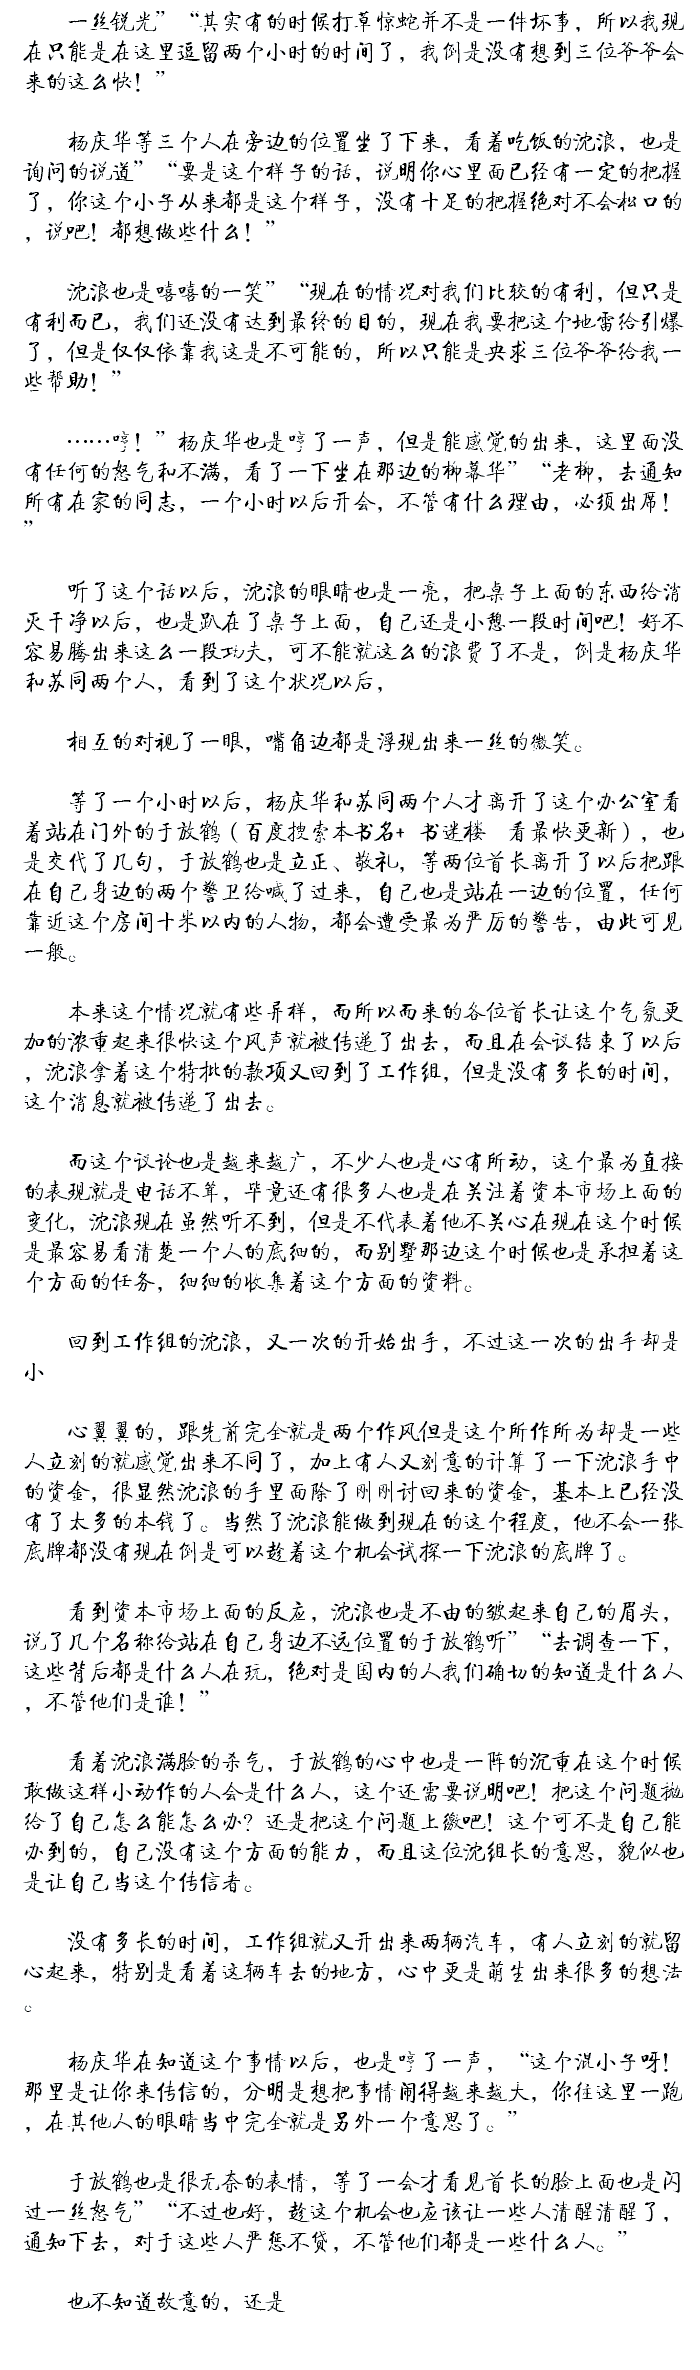 一丝锐光”“其实有的时候打草惊蛇并不是一件坏事，所以我现
在只能是在这里逗留两个小时的时间了，我倒是没有想到三位爷爷会
来的这么快！”
杨庆华等三个人在旁边的位置坐了下来，看着吃饭的沈浪，也是
询问的说道”“要是这个样子的话，说明你心里面已经有一定的把握
了，你这个小子从来都是这个样子，没有十足的把握绝对不会松口的
，说吧！都想做些什么！”
沈浪也是嘻嘻的一笑”“现在的情况对我们比较的有利，但只是
有利而已，我们还没有达到最终的目的，现在我要把这个地雷给引爆
了，但是仅仅依靠我这是不可能的，所以只能是央求三位爷爷给我一
些帮助！”
……哼！”杨庆华也是哼了一声，但是能感觉的出来，这里面没
有任何的怒气和不满，看了一下坐在那边的柳幕华”“老柳，去通知
所有在家的同志，一个小时以后开会，不管有什么理由，必须出席！
”
听了这个话以后，沈浪的眼睛也是一亮，把桌子上面的东西给消
灭干净以后，也是趴在了桌子上面，自己还是小憩一段时间吧！好不
容易腾出来这么一段功夫，可不能就这么的浪费了不是，倒是杨庆华
和苏同两个人，看到了这个状况以后，
相互的对视了一眼，嘴角边都是浮现出来一丝的微笑。
等了一个小时以后，杨庆华和苏同两个人才离开了这个办公室看
着站在门外的于放鹤（百度搜索本书名+ 书迷楼 看最快更新），也
是交代了几句，于放鹤也是立正、敬礼，等两位首长离开了以后把跟
在自己身边的两个警卫给喊了过来，自己也是站在一边的位置，任何
靠近这个房间十米以内的人物，都会遭受最为严厉的警告，由此可见
一般。
本来这个情况就有些异样，而所以而来的各位首长让这个气氛更
加的浓重起来很快这个风声就被传递了出去，而且在会议结束了以后
，沈浪拿着这个特批的款项又回到了工作组，但是没有多长的时间，
这个消息就被传递了出去。
而这个议论也是越来越广，不少人也是心有所动，这个最为直接
的表现就是电话不断，毕竟还有很多人也是在关注着资本市场上面的
变化，沈浪现在虽然听不到，但是不代表着他不关心在现在这个时候
是最容易看清楚一个人的底细的，而别墅那边这个时候也是承担着这
个方面的任务，细细的收集着这个方面的资料。
回到工作组的沈浪，又一次的开始出手，不过这一次的出手却是
小
心翼翼的，跟先前完全就是两个作风但是这个所作所为却是一些
人立刻的就感觉出来不同了，加上有人又刻意的计算了一下沈浪手中
的资金，很显然沈浪的手里面除了刚刚讨回来的资金，基本上已经没
有了太多的本钱了。当然了沈浪能做到现在的这个程度，他不会一张
底牌都没有现在倒是可以趁着这个机会试探一下沈浪的底牌了。
看到资本市场上面的反应，沈浪也是不由的皱起来自己的眉头，
说了几个名称给站在自己身边不远位置的于放鹤听”“去调查一下，
这些背后都是什么人在玩，绝对是国内的人我们确切的知道是什么人
，不管他们是谁！”
看着沈浪满脸的杀气，于放鹤的心中也是一阵的沉重在这个时候
敢做这样小动作的人会是什么人，这个还需要说明吧！把这个问题抛
给了自己怎么能怎么办？还是把这个问题上缴吧！这个可不是自己能
办到的，自己没有这个方面的能力，而且这位沈组长的意思，貌似也
是让自己当这个传信者。
没有多长的时间，工作组就又开出来两辆汽车，有人立刻的就留
心起来，特别是看着这辆车去的地方，心中更是萌生出来很多的想法
。
杨庆华在知道这个事情以后，也是哼了一声，“这个混小子呀！
那里是让你来传信的，分明是想把事情闹得越来越大，你往这里一跑
，在其他人的眼睛当中完全就是另外一个意思了。”
于放鹤也是很无奈的表情，等了一会才看见首长的脸上面也是闪
过一丝怒气”“不过也好，趁这个机会也应该让一些人清醒清醒了，
通知下去，对于这些人严惩不贷，不管他们都是一些什么人。”
也不知道故意的，还是